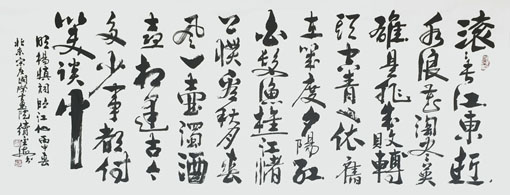 滚々长江東逝
水浪花淘盡英
雄是非成敗轉
頭空青山依舊
在幾度夕陽紅
白髮漁樵江渚
上慣看秋月春
風一壺濁酒
喜相逢古今
多少事都付
笑談中
明楊慎詞臨江仙丙申春
北京宋庄國學書院